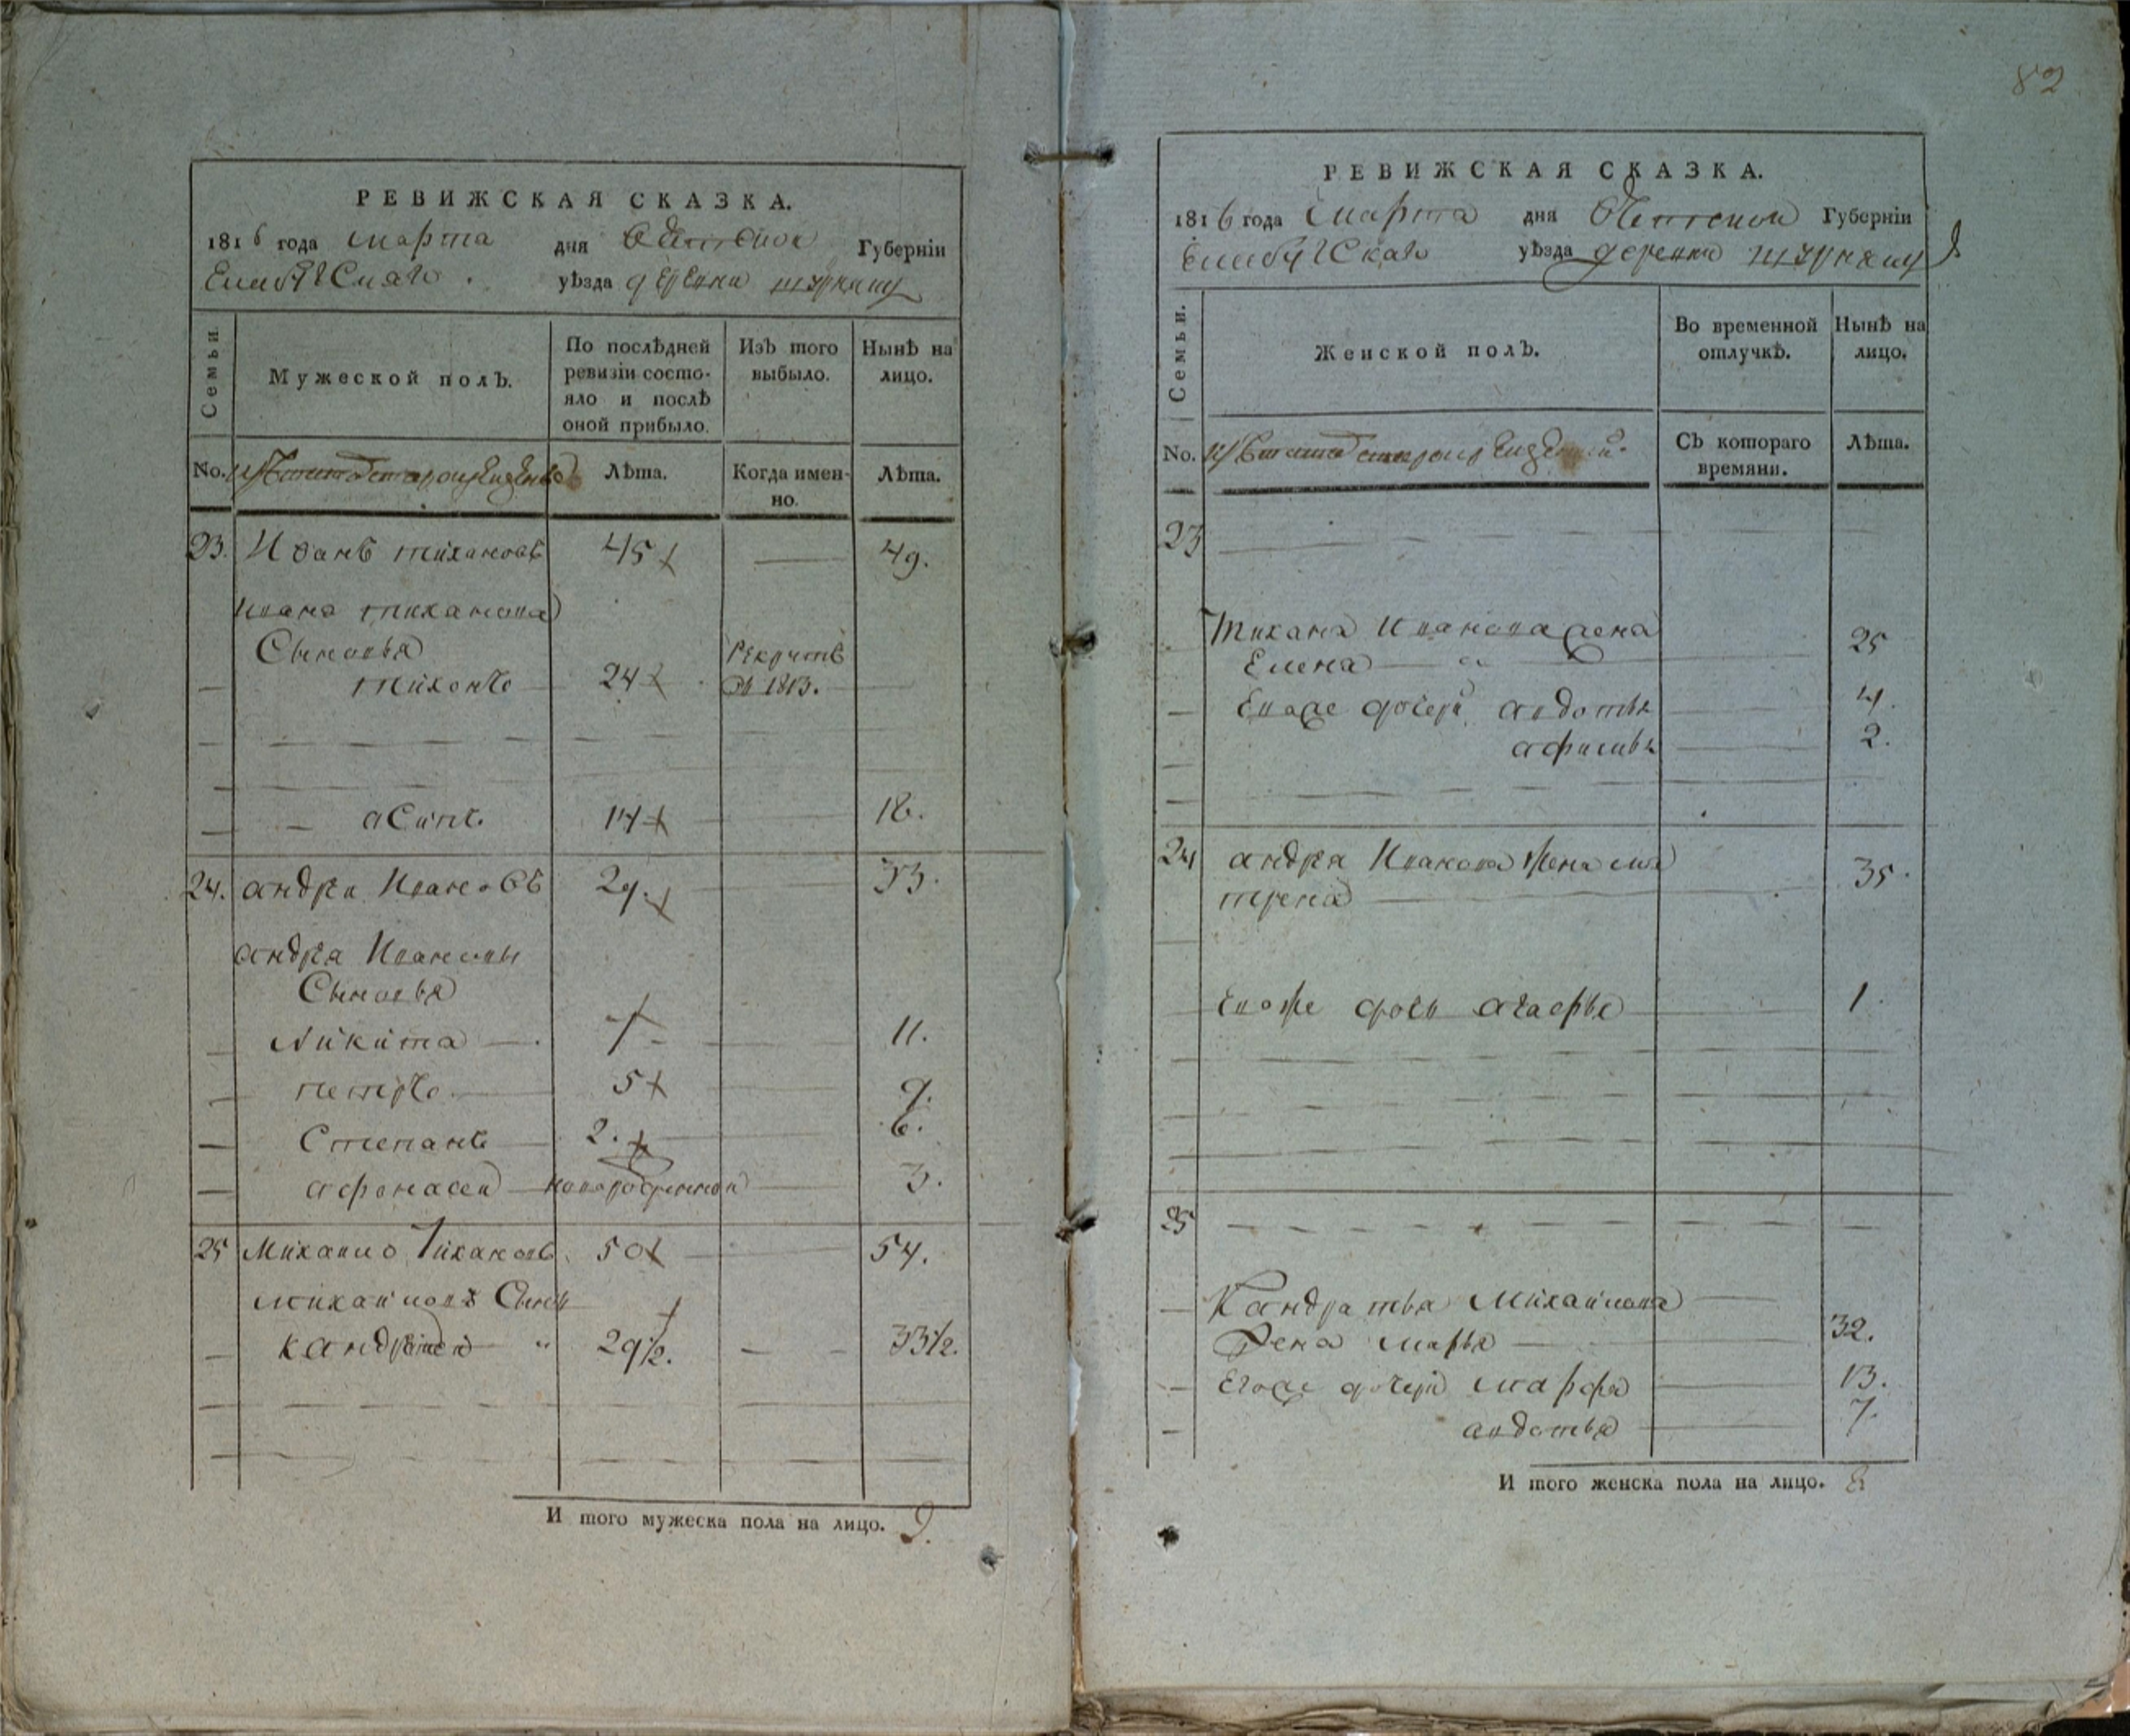 82
РЕВИЖСКАЯ СКАЗКА.
1816 года марта дня Вятской Губерніи
Елабугскаго уѣзда деревни
Семьи.
Мужеской полЪ.
По послѣдней ревизіи состояло и послѣ оной прибыло.
ИзЪ того выбыло.
Нынѣ на лицо.
No.
Лѣта.
Когда именно.
Лѣта.
23. Иванъ тихановъ 45 49.
Ивана тиханова
Сыновья
тихонъ 24 Рекрутъ въ 1813.
асипъ 14 18.
24. андреи Ивановъ 29. 33.
андрея Иванова
Сыновья
Никита 7 11.
петръ 5 9.
Степанъ 2. 6.
афонасеи новорожденной 3.
25 Михаило Тихановъ 50 54.
михаилова Сынъ
кандратеи 29 1/2. 33 1/2.
И того мужеска пола на лицо. 9.
РЕВИЖСКАЯ СКАЗКА.
1816 года марта дня Вятской Губерніи
Елабугскаго уѣзда деревни
Семьи.
Женской полЪ.
Во временной отлучкѣ.
Нынѣ на лицо.
No.
СЪ котораго времяни.
Лѣта.
23
Тихана Иванова жена
Елена 25
Еваже дочери авдотья 4.
афимья 2.
24 андрея Иванова жена ма
трена 35
Еваже дочь агафья 1.
25
Кандратья Михаилова
жена марья 32.
Егоже дочери марфа 13.
авдотья 7.
И того женска пола на лицо. 8